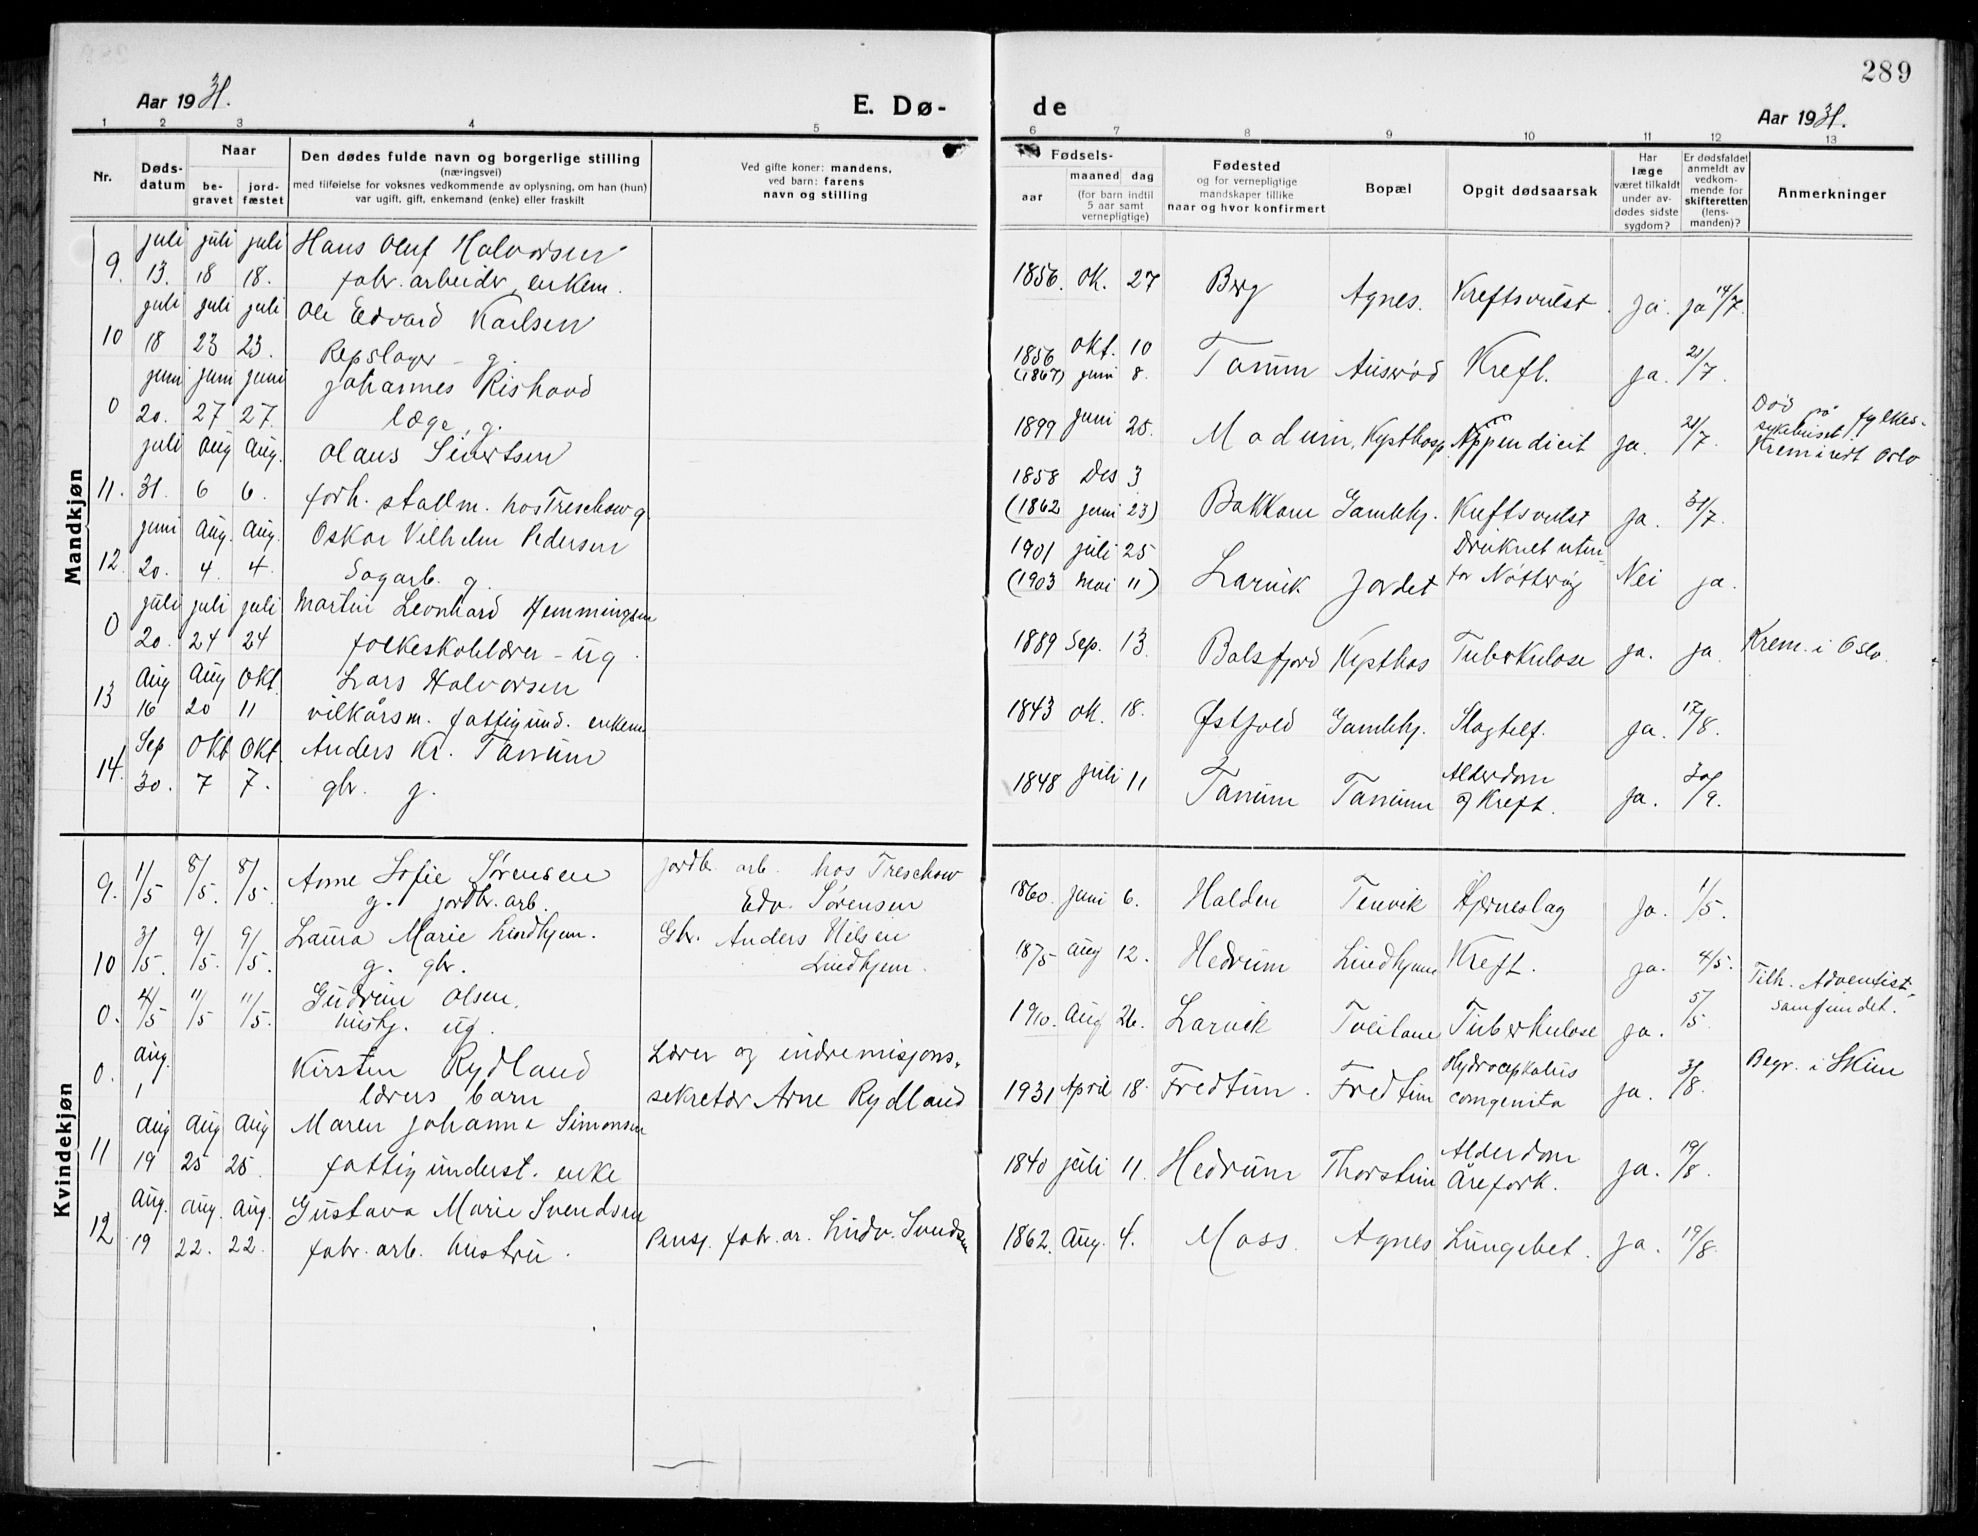 289
Aar 1931.
E. Dø-
de
Aar 1931.
1 2 3 4 5 6 7 8 9 10 11 12 13
Nr.
Døds-
datum
Naar
be-
gravet
jord-
fæstet
Den dødes fulde navn og borgerlige stilling
(næringsvei)
med tilføielse for voksnes vedkommende av oplysning, om han (hun)
var ugift, gift, enkemand (enke) eller fraskilt
Ved gifte koner: mandens,
ved barn: farens
navn og stilling
Fødsels-
aar
maaned dag
(for barn indtil
5 aar samt
vernepligtige)
Fødested
og for vernepligtige
mandskaper tillike
naar og hvor konfirmert
Bopæl
Opgit dødsaarsak
Har
læge
været tilkaldt
under av-
dødes sidste
sygdom?
Er dødsfaldet
anmeldt av
vedkom-
mende for
skifteretten
(lens-
manden)?
Anmerkninger
Mandkjøn
9. juli 13. juli 18 juli 18. Hans Oluf Halvorsen
fabr. arbeider, enkem.
1856. ok. 27 Berg Agnes. Kreftsvulst. ja. ja 14/7.
10 juli 18 juli 23 juli 23. Ole Edvard Karlsen
Repslager - g.
1856 okt. 10
(1867) juni 8. Tanum Ausrød Kreft. ja. 21/7.
0 juni 20. juni 27 juni 27. Johannes Rishovd
læge, g.
1899 juni 25. Modum, Kysthosp. Appendicit ja. 21/7. Død på fylkes-
sykehuset
Kremeredt Oslo
11. juli 31. Aug 6 Aug. 6. Olaus Sivertsen
forh. stallm. hos Treschow g.
1858 Des 3
(1862 juni 23) Bakkane Gamlehj. Kreftsvulst ja. 31/7.
12. juni 20. Aug. 4. Aug. 4. Oskar Vilhelm Pedersen
Sagarb. g.
1901 juli 25
(1903 mai 11) Larvik Jordet Druknet uten-
for Nøtterøy Nei ja.
0 juli 20. juli 24 juli 24 Martin Leonhard Hemmingsen
folkeskolelærer - ug.
1889 Sep. 13. Balsfjord Kysthos Tuberkulose ja. ja. Krem. i Oslo.
13 Aug 16 Aug 20 Okt. 11 Lars Halvorsen
vilkårsm. fattigund. enkem
1843 ok. 18. Østfold Gamlehj. Slagtilf. ja. 17/8.
14. Sep 30. Okt 7 Okt. 7. Anders Kr. Tanum
gbr. g.
1848 juli 11 Tanum Tanum Alderdom
og Kreft. ja. 30/9.
Kvindekjøn
9. 1/5 8/5. 8/5. Anne Sofie Sørensen
g. jordbr. arb.
jordbr. arb. hos Treschow
Edv. Sørensen
1860. juni 6. Halden Tenvik Hjerneslag ja. 1/5.
10 3/5. 9/5. 9/5. Laura Marie Lindhjem.
g. gbr.
Gbr. Anders Nilsen
Lindhjem.
1875 aug 12. Hedrum Lindhjem Kreft. ja. 4/5.
0. 4/5 11/5 11/5. Gudrun Olsen.
hushj. ug.
1910. Aug 26. Larvik Tveitane Tuberkulose ja. 5/5 Tilh. Adventist-
samfundet.
0. Aug. 1 Kirsten Rydland
lærers barn
Lærer og indremisjons-
sekretær Arne Rydland
1931 April 18. Fredtun. Fredtun Hydrocephalus
congenita ja. 3/8. Begr. i Skien
11 Aug 19 Aug 25 Aug 25. Maren Johanne Simonsen
fattigunderst. enke
1840 juli 11. Hedrum Thorstein Alderdom
Årefork. ja. 19/8.
12 Aug. 19 Aug. 22. Aug. 22. Gustava Marie Svendsen
fabr. arb. hustru.
Pensj. fabr. ar. Ludv. Svendsen
1862. Aug. 4. Moss. Agnes Lungebet. ja. 19/8.